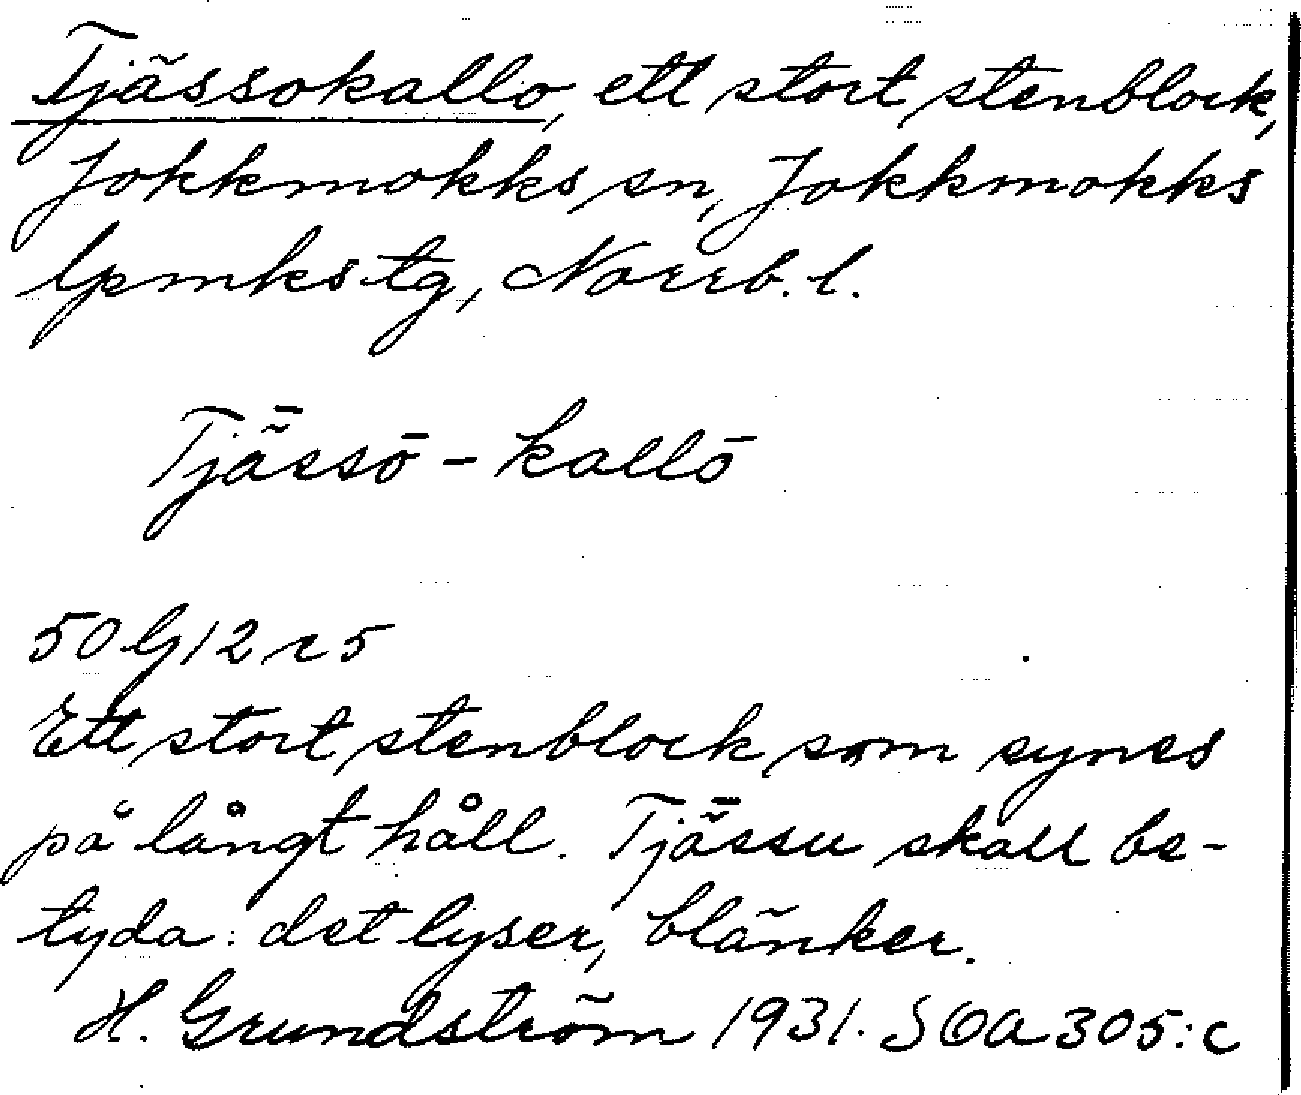 Tjässokallo, ett stort stenblock,
Jokkmokks sn, Jokkmokks
lpmkstg, Norrb. l.
Tjǟssō - kallō
50 G 12 c 5
Ett stort stenblock som synes
på långt håll. Tjǟssu skall be-
tyda: det lyser, blänker.
H. Grundström 1931. SOA 305:c